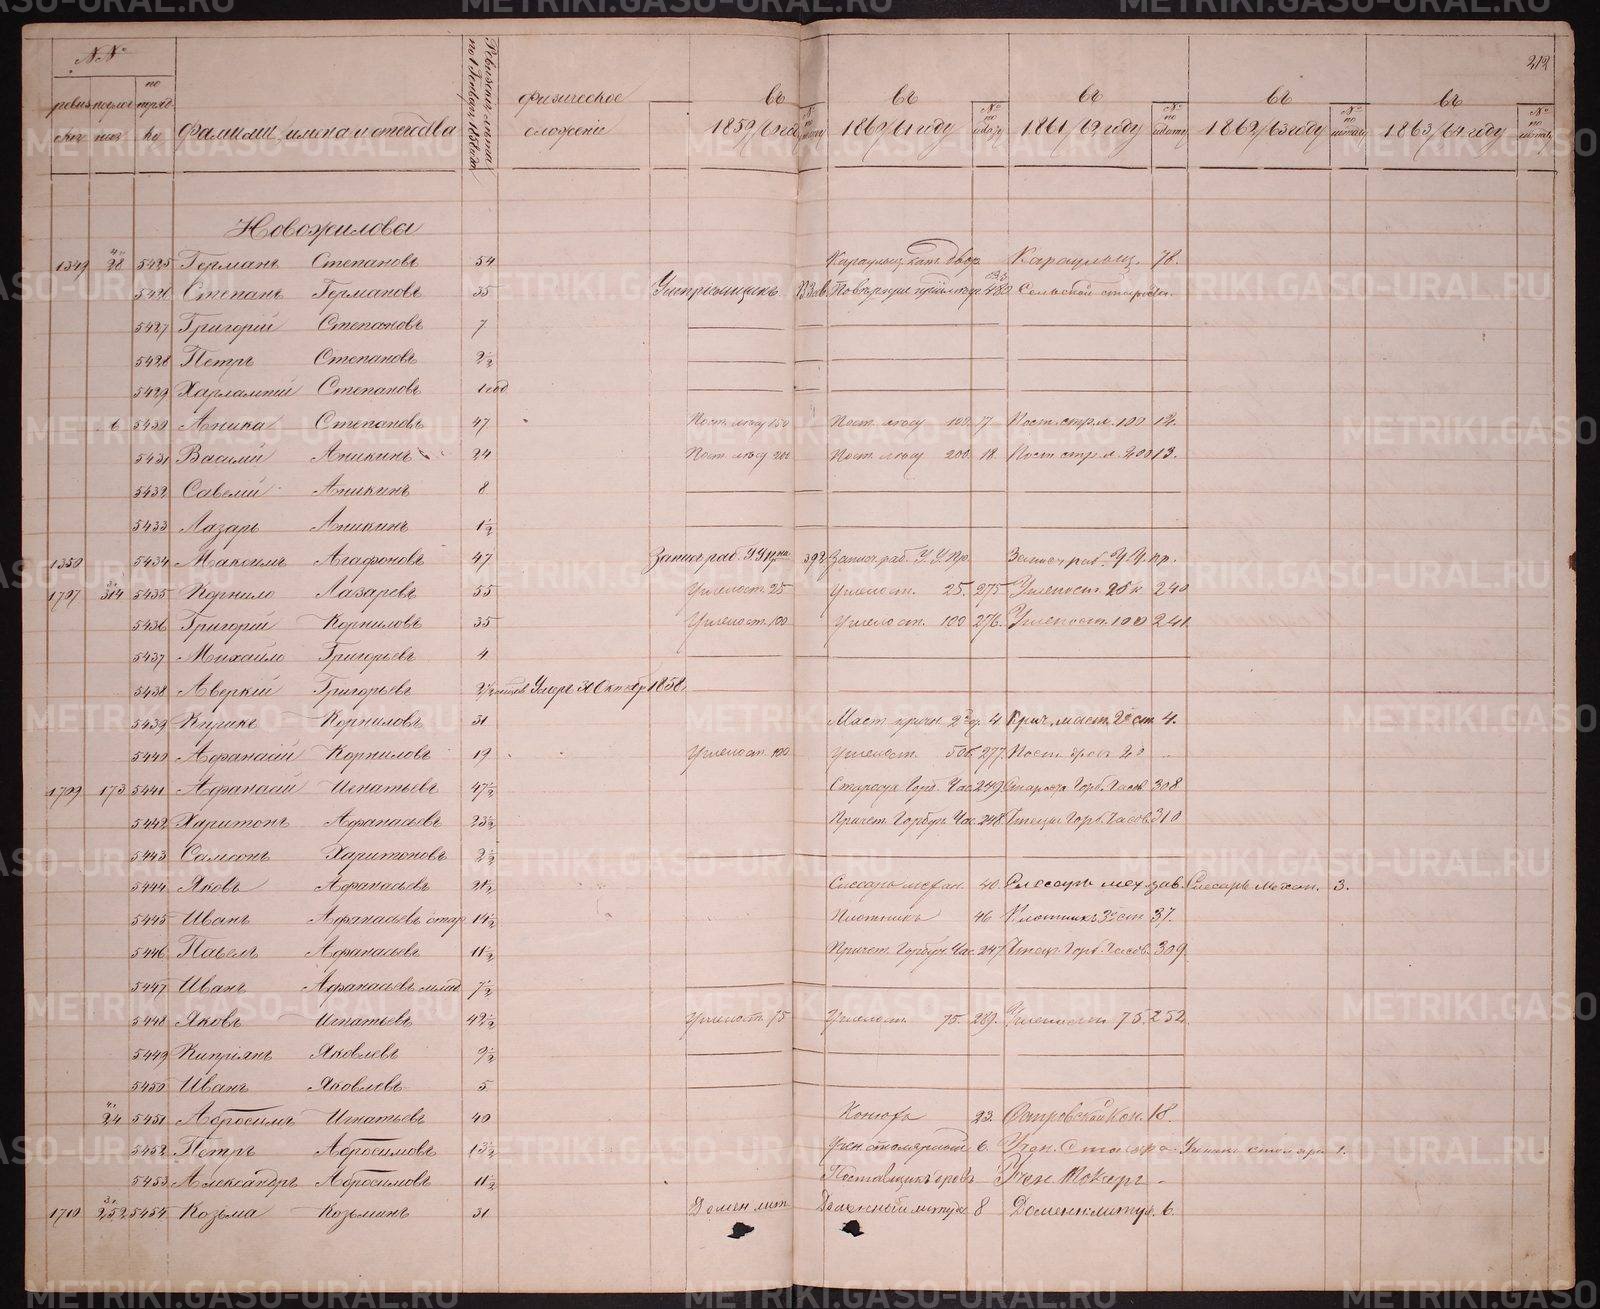 212
№№
ревиз
по
поряд
ко
Фамилии, имена и отечества
Ревизскія лѣта
по 1 Генваря 1858 года
физическое
сложеніе
въ
1859/60 году
№ по штату
въ
1860/61 году
№ по штату
въ
1861/62 году
№ по штату
въ
1862/63 году
№ по штату
въ
1863/64 году
№ по штату
Новожилова
1349 28 5425 Германъ Степановъ 54 Караульщ. двор Караульщ. 78.
5426 Степанъ Германовъ 35 Сельской староста.
5427 Григорій Степановъ 7
5428 Петръ Степановъ 2½
5429 Харлампій Степановъ 1 год
6 5430 Аника Степановъ 47 Пост. лѣсу 150 Пост. лѣсу 100. 17 Пост. стр. л. 100 12.
5431 Василій Аникинъ 24 Пост. лѣсу 200 Пост. лѣсу 200. 18. Пост. стр. л. 200 13.
5432 Савелій Аникинъ 8
5433 Лазарь Аникинъ 1½
1350 5434 Максимъ Агафоновъ 47 раб. 392 раб. раб.
1707 314 5435 Корнило Лазаревъ 55 Углепост. 25 Углепост. 25. 275 Углепост. 25 к 240
5436 Григорій Корниловъ 35 Углепост. 100 Углепост. 100 276. Углепост. 100 241.
5437 Михайло Григорьевъ 4
5438 Аверкій Григорьевъ Умеръ Октябр. 1858.
5439 Кирикъ Корниловъ 31 Маст. 4 маст. 2 ст. 4.
5440 Афанасій Корниловъ 19 Углепост. 100 Углепост. 50 к. 277. Пост. дров 20
1709 173 5441 Афанасій Игнатьевъ 47½ Староста Горб. Час. 249 Староста Горб. Часов. 308
5442 Харитонъ Афанасьевъ 23½ Причет. Горбун. Час. 248 Чтецъ Горб. Часов. 310
5443 Самсонъ Харитоновъ 2½
5444 Яковъ Афанасьевъ 21½ Слесарь механ. 40. Слесарь мех. зав. Слесарь механ. 3.
5445 Иванъ Афанасьевъ стар. 14½ Плотникъ 46 Плотникъ 3 ст. 37.
5446 Павелъ Афанасьевъ 11½ Причет. Горбун. Час. 247 Чтецъ Горб. Часов. 309
5447 Иванъ Афанасьевъ млад. 7½
5448 Яковъ Игнатьевъ 42½ Углепост. 75 Углепост. 75. 289. Углепост. 75. 252
5449 Кипріянъ Яковлевъ 9½
5450 Иванъ Яковлевъ 5
24 5451 Абросимъ Игнатьевъ 40 Конюхъ 23. Островской Кон. 18.
5452 Петръ Абросимовъ 13½ Учен. столярный 6. Учен. Столяра Ученикъ столяра 1.
5453 Александръ Абросимовъ 11½ Поставщикъ дровъ Учен. Токаря -
1710 252 5454 Козьма Козьминъ 31 Домен. лит. Доменный литухъ 8 Доменн. литух. 6.